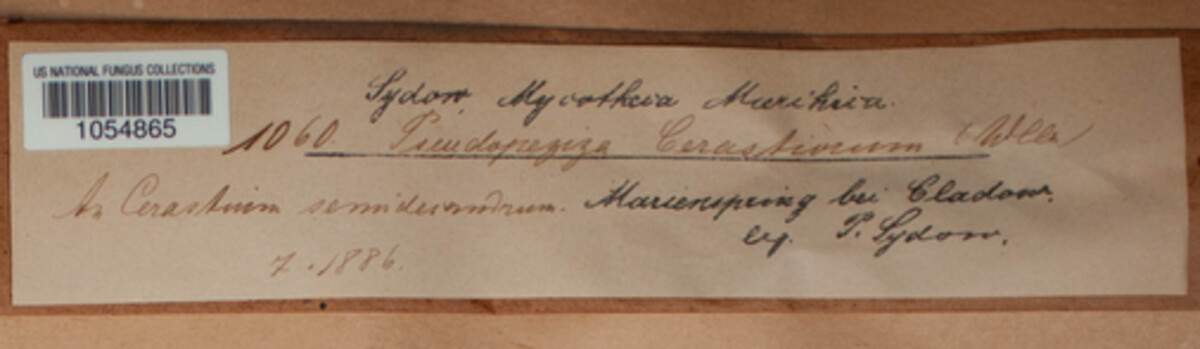 US NATIONAL FUNGUS COLLECTIONS
1054865
Sydow Mycotheca Marchica.
1060. Pseudopeziza Cerastiorum (Wllr)
An Cerastium semidecandrum. Marienspring bei Cladow.
leg. P. Sydow.
7.1886.